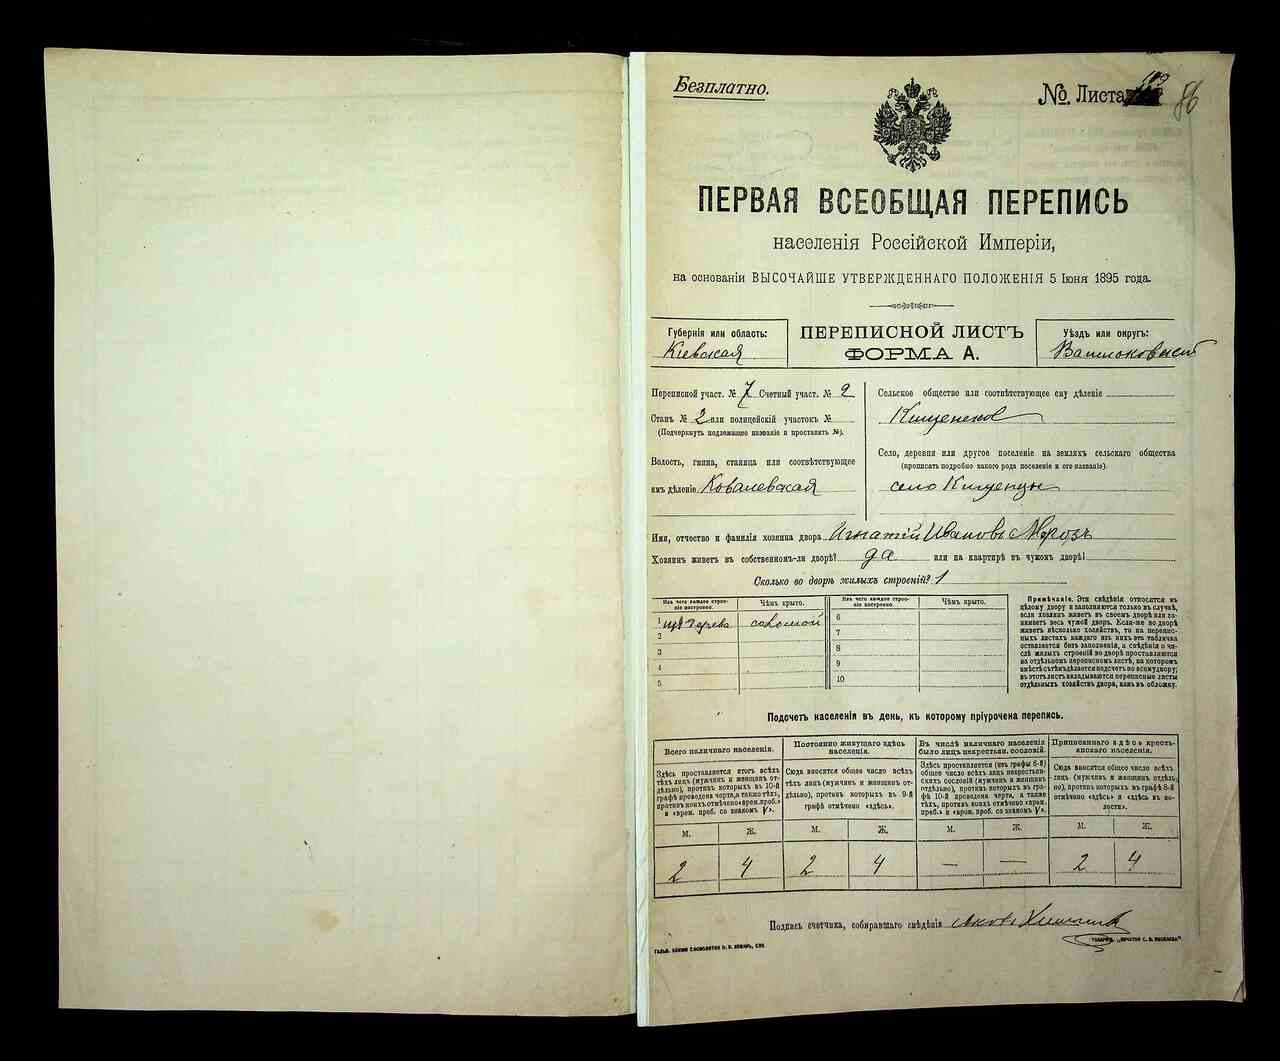 Безплатно.
№. Листа 86
ПЕРВАЯ ВСЕОБЩАЯ ПЕРЕПИСЬ
населенія Россійской Имперіи,
на основаніи ВЫСОЧАЙШЕ УТВЕРЖДЕННАГО ПОЛОЖЕНІЯ 5 Іюня 1895 года.
Губернія или область:
Кіевская
ПЕРЕПИСНОЙ ЛИСТЪ
ФОРМА А.
Уѣздъ или округъ:
Переписной участ. № 7 Счетный участ. № 2
Станъ № 2 или полицейскій участокъ №
(Подчеркнуть подлежащее названіе и проставить №).
Волость, гмина, станица или соотвѣтствующее
имъ дѣленіе Ковалевская
Сельское общество или соотвѣтствующее ему дѣленіе
Село, деревня или другое поселеніе на земляхъ сельскаго общества
(прописать подробно какого рода поселеніе и его названіе).
село Кищенцы
Имя, отчество и фамилія хозяина двора Игнатій Ивановъ Морозъ
Хозяинъ живетъ въ собственномъ-ли дворѣ? да или на квартирѣ въ чужомъ дворѣ?
Сколько во дворѣ жилыхъ строеній? 1
Изъ чего каждое строеніе построено.
Чѣмъ крыто.
1 изъ дерева соломой
2
3
4
5
Изъ чего каждое строеніе построено.
Чѣмъ крыто.
6
7
8
9
10
Примѣчаніе. Эти свѣдѣнія относятся къ
цѣлому двору и заполняются только въ случаѣ,
если хозяинъ живетъ въ своемъ дворѣ или занимаетъ
весь чужой дворъ. Если-же во дворѣ
живетъ нѣсколько хозяйствъ, то на переписныхъ
листахъ каждаго изъ нихъ эта табличка
оставляется безъ заполненія, а свѣдѣнія о числѣ
жилыхъ строеній во дворѣ проставляются
на отдѣльномъ переписномъ листѣ, на которомъ
вмѣстѣ съ тѣмъ дѣлается подсчетъ по всему двору;
въ этотъ листъ вкладываются переписные листы
отдѣльныхъ хозяйствъ двора, какъ въ обложку.
Подсчетъ населенія въ день, къ которому пріурочена перепись.
Всего наличнаго населенія.
Здѣсь проставляется итогъ всѣхъ
лицъ (мужчинъ и женщинъ отдѣльно),
противъ которыхъ въ 10-й
графѣ проведена черта, а также тѣхъ,
противъ коихъ отмѣчено «врем. преб.»
и «врем. преб. со знакомъ V».
М. Ж.
2 4
Постоянно живущаго здѣсь
населенія.
Сюда вносится общее число всѣхъ
тѣхъ лицъ (мужчинъ и женщинъ отдѣльно),
противъ которыхъ въ 9-й
графѣ отмѣчено «здѣсь».
М. Ж.
2 4
Въ числѣ наличнаго населенія
было лицъ некрестьян. сословій.
Здѣсь проставляется (изъ графы 6-й)
общее число всѣхъ лицъ некрестьянскихъ
сословій (мужчинъ и женщинъ
отдѣльно), противъ которыхъ въ графѣ
10-й проведена черта, а также
тѣхъ, противъ коихъ отмѣчено «врем.
преб.» и «врем. преб. со знакомъ V».
М. Ж.
— —
Приписаннаго здѣсь крестьянскаго
населенія.
Сюда вносится общее число всѣхъ
лицъ (мужчинъ и женщинъ отдѣльно),
противъ которыхъ въ графѣ 8-й
отмѣчено «здѣсь» и «здѣсь въ волости».
М. Ж.
2 4
Подпись счетчика, собиравшаго свѣдѣнія Яковъ